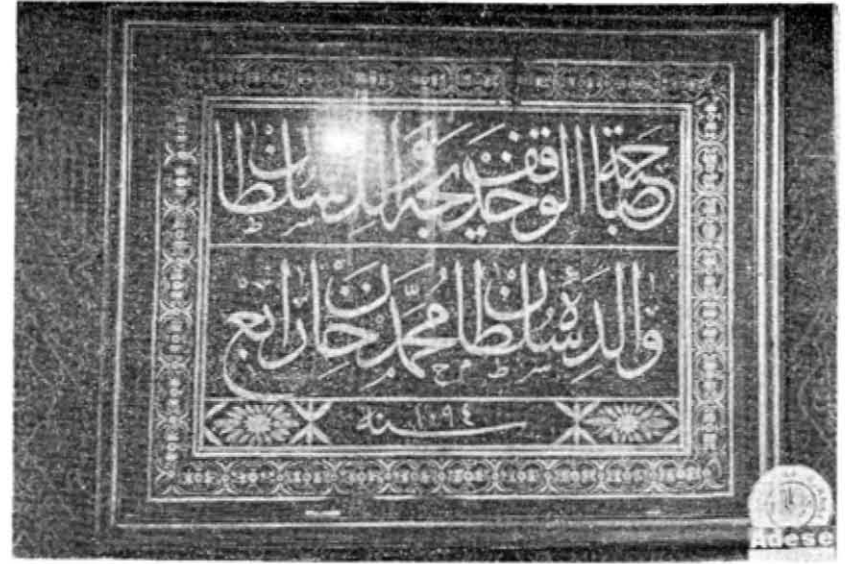 صاحبة الوقف خديجه والده سلطان
والدهٔ سلطان محمد خان رابع
سنه ١٠٩٤
Adese